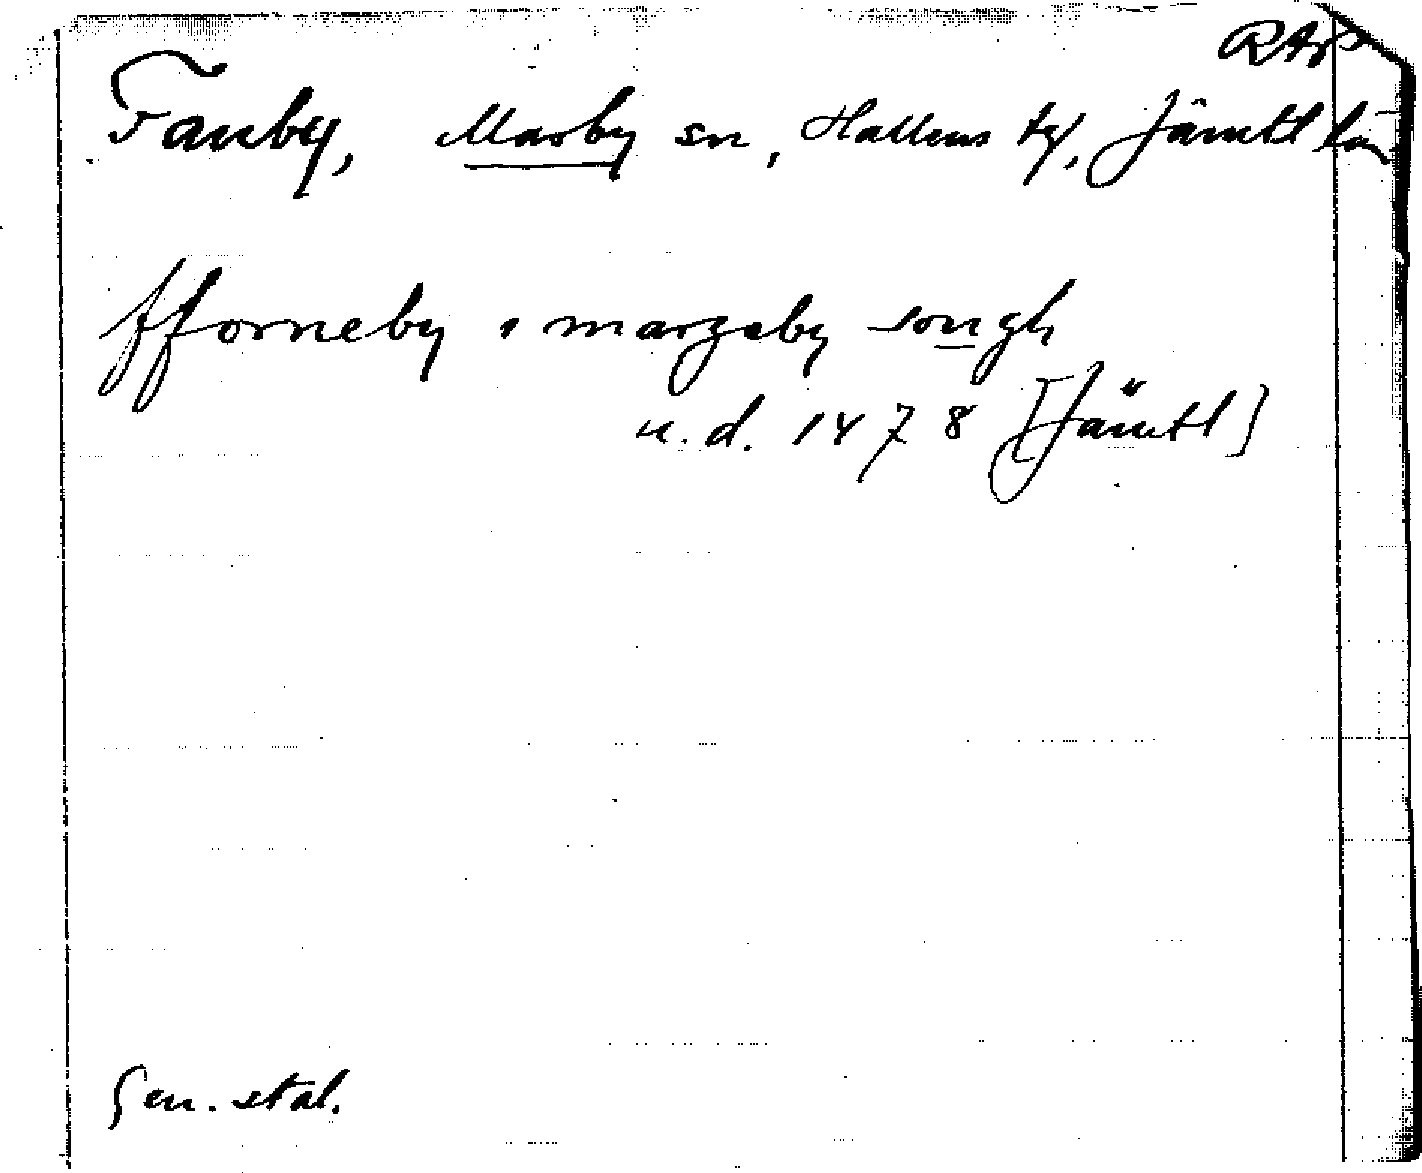 RAp
Fanby, Marby sn, Hallens tg, Jämtl län
fforneby i margaby songh
u. d. 1478 [Jämtl]
Gen. stal.